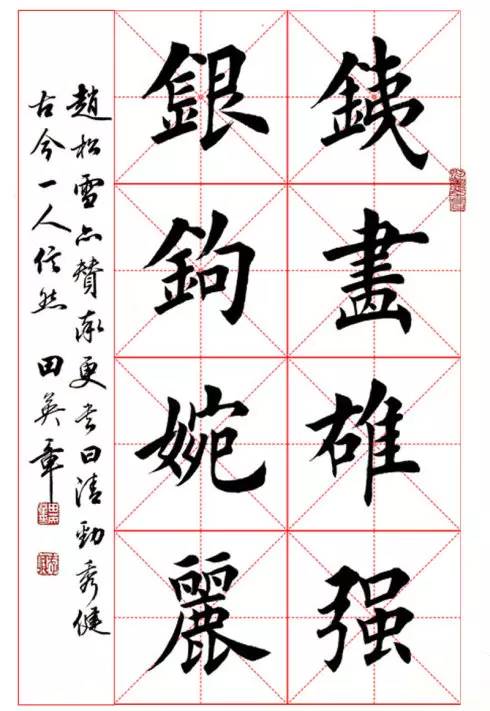 銕畫雄强
銀鉤婉麗
趙松雪亦贊率更书曰清勁秀健
古今一人信然 田英章